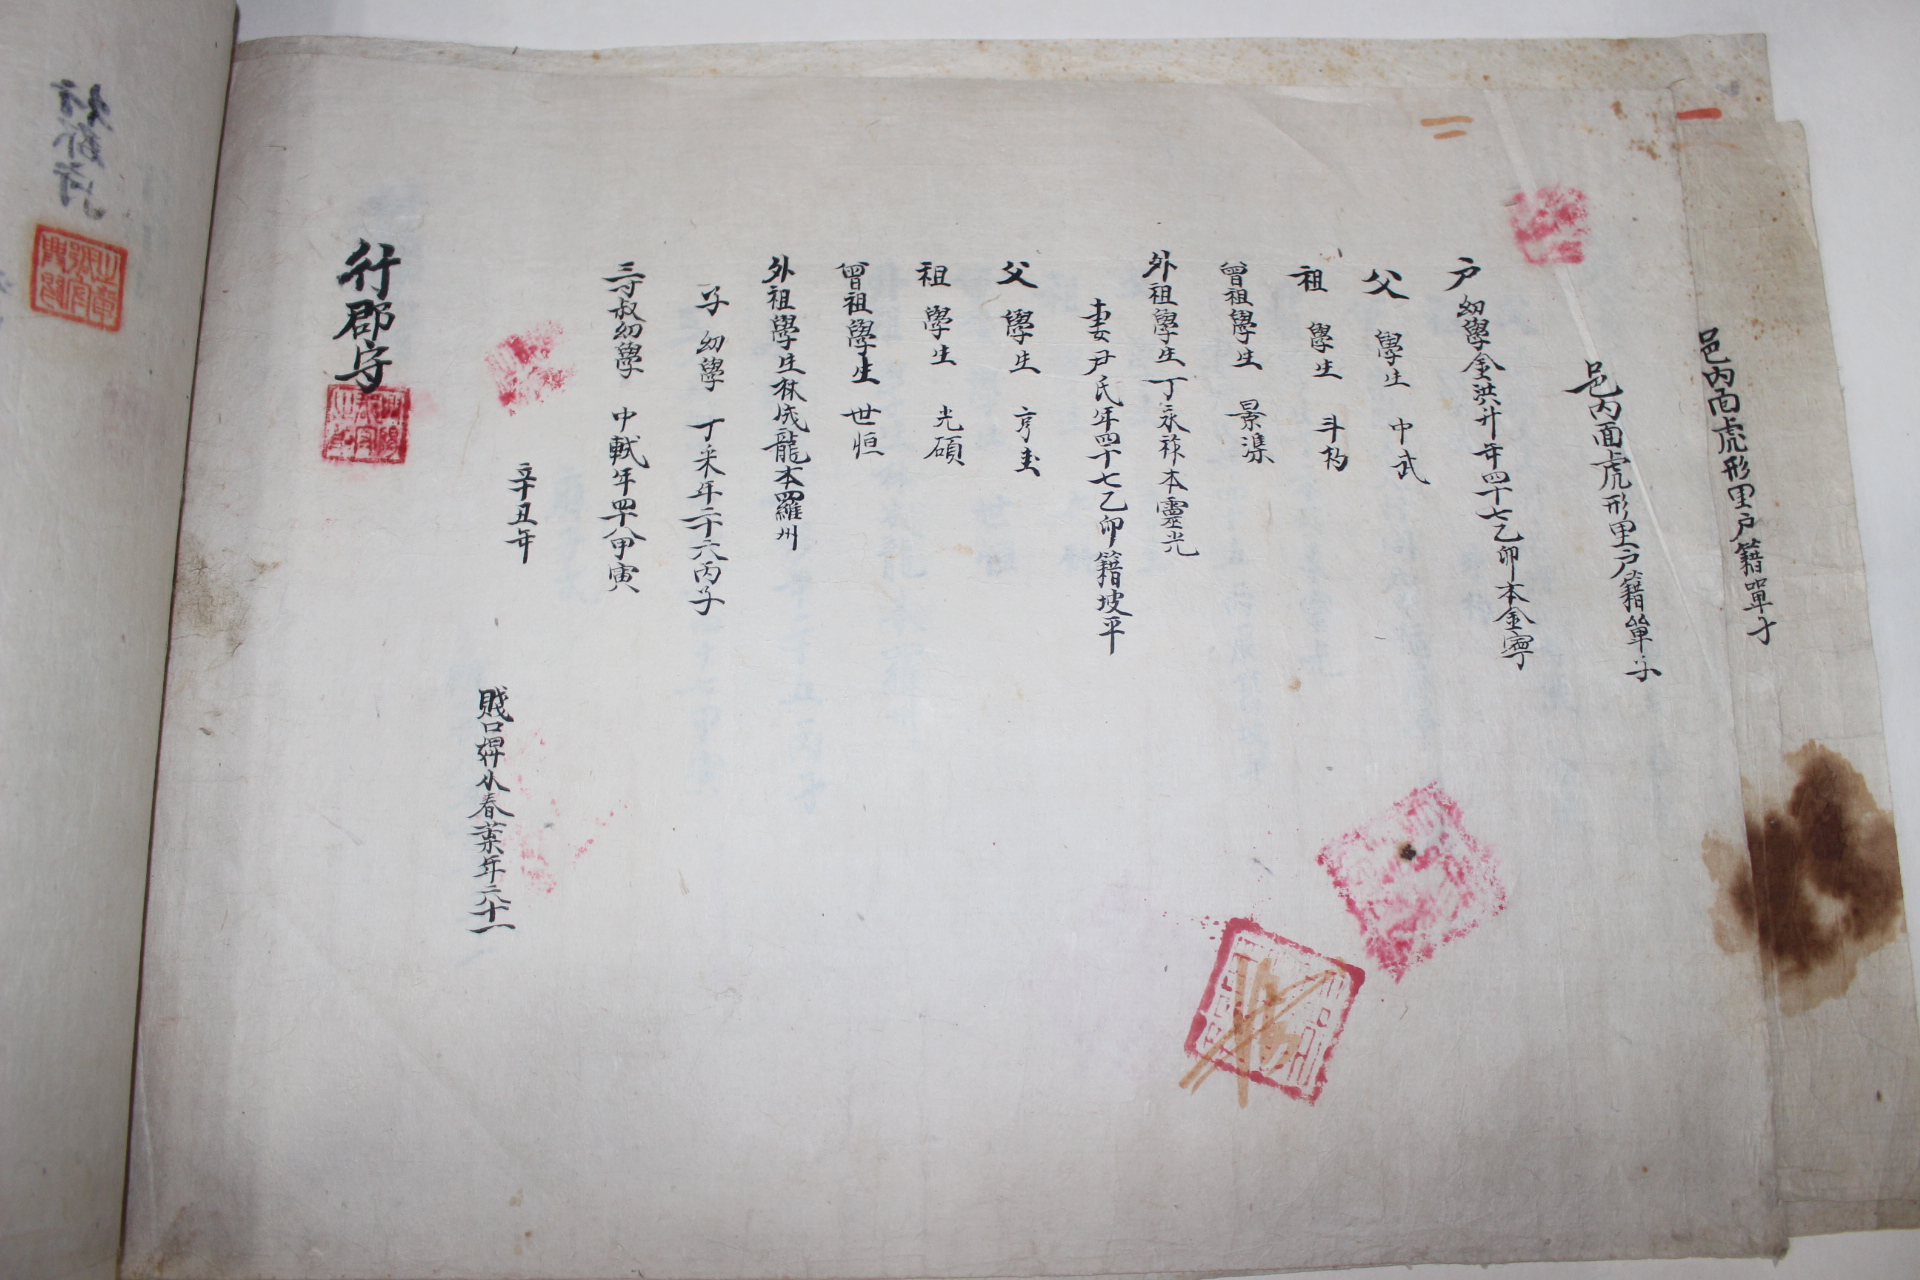 邑內面虎形里戶籍單子
邑內面虎形里戶籍單子
戶 幼學金洪升年四十七乙卯本金寧
父 學生 中武
祖 學生 斗杓
曾祖學生 景濮
外祖學生丁永祚本靈光
妻尹氏年四十七乙卯籍坡平
父 學生 亨圭
祖 學生 光碩
曾祖學生 世恒
外祖學生林成龍本羅州
子 幼學 丁采年二十六丙子
三寸叔幼學 中軾年四十八甲寅
辛丑年
賤口婢小春葉年六十一
行郡守